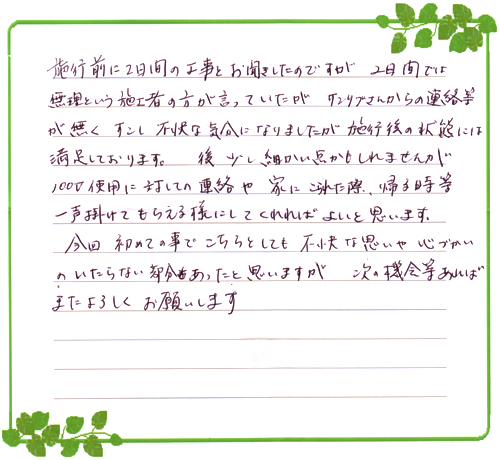 施行前に2日間の工事とお聞きしたのですが 2日間では
無理という施工者の方が言っていたが サンリブさんからの連絡等
が無く すこし不快な気分になりましたが 施行後の状態には
満足しております。 後 少し細かい点かもしれませんが
100V使用に対しての連絡や 家にこられた際、帰る時等
一声掛けてもらえる様にしてくれればよいと思います。
今回 初めての事でこちらとしても 不快な思いや 心づかい
のいたらない部分もあったと思いますが 次の機会等あれば
またよろしく お願いします